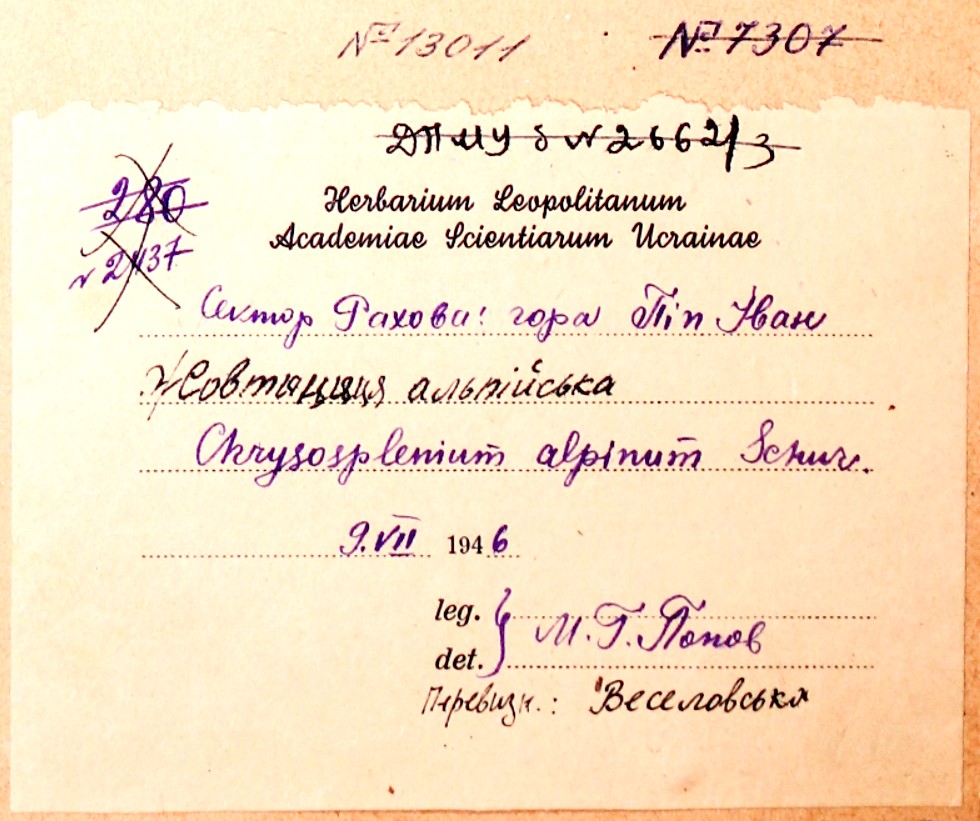 № 13011
№ 7307
ДПМУ б N 2662/3
280
N 2437
Herbarium Leopolitanum
Academiae Scientiarum Ucrainae
Сектор Рахова: гора Піп Іван
Жовтяниця альпійська
Chrysosplenium alpinum Schur.
9.VII 1946
leg.
det.
М. Г. Попов
Перевизн.: Веселовська